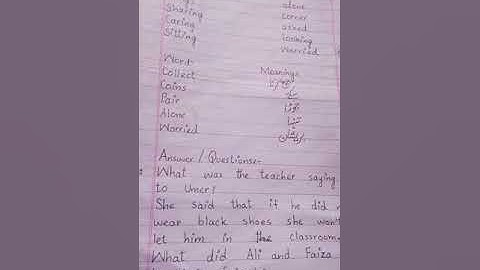 Sharing alone
Caring corner
Sitting sized
looking
worried
Word Meanings
Collect جمع کرنا
Coins سکے
Pair جوڑا
Alone تنہا
Worried پریشان
Answer / Questions:-
What was the teacher saying
to Umer?
She said that if he did
wear black shoes she won't
let him in the classroom
What did Ali and Faiza